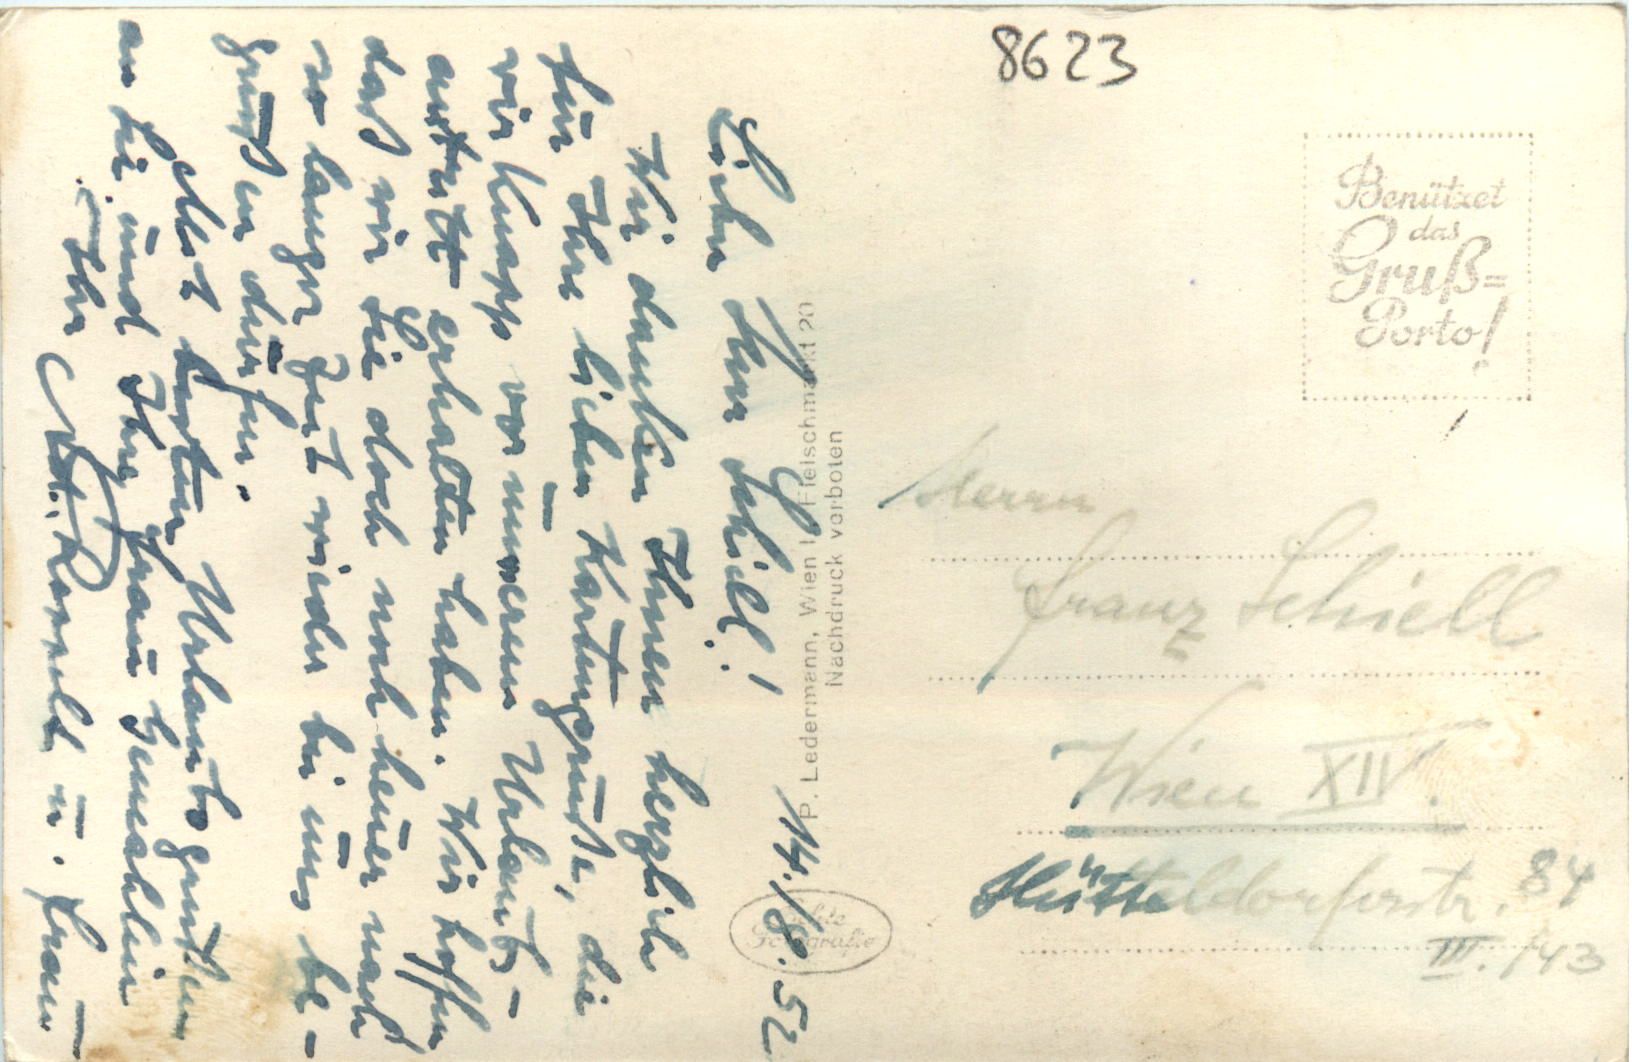 8623
Benützet
das
Gruß=
Porto!
14./8. 52
Lieber Herr Schiell!
Wir danken Ihnen herzlich
für Ihre lieben Kartengrüße, die
wir knapp vor unserem Urlaubs-
antritt erhalten haben. Wir hoffen
daß wir Sie doch noch heuer nach
so langer Zeit wieder bei uns be-
grüßen dürfen.
Mit besten Urlaubsgrüßen
an Sie und Ihre Frau Gemahlin
Ihr u. Frau
P. Ledermann, Wien I, Fleischmarkt 20
Nachdruck verboten
Echte
Fotografie
Herrn
Franz Schiell
Wien XIV.
Hütteldorferstr. 84
III./43